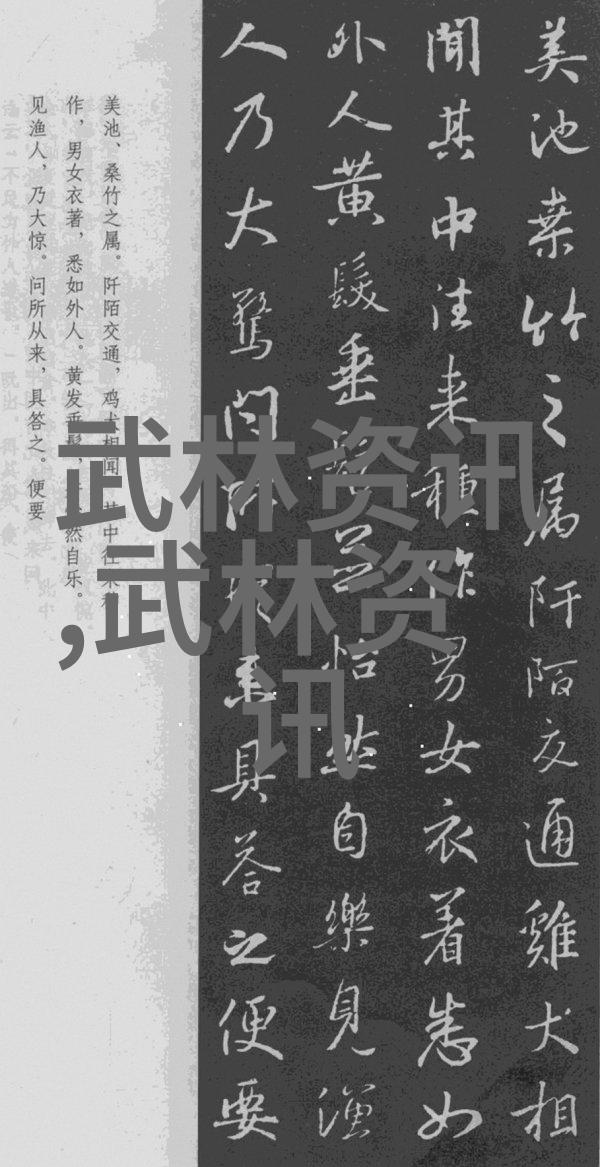 美池桒竹之属阡陌交通雞犬相
聞其中往来種作男女衣着悉如
外人黄髮垂髫並怡然自樂見漁
人乃大驚問所從来具荅之便要
美池、桑竹之属。阡陌交通，鸡犬相闻。其中往来种
作，男女衣著，悉如外人。黄发垂髫，并怡然自乐。
见渔人，乃大惊。问所从来，具答之。便要
武林资讯
,武林资
讯